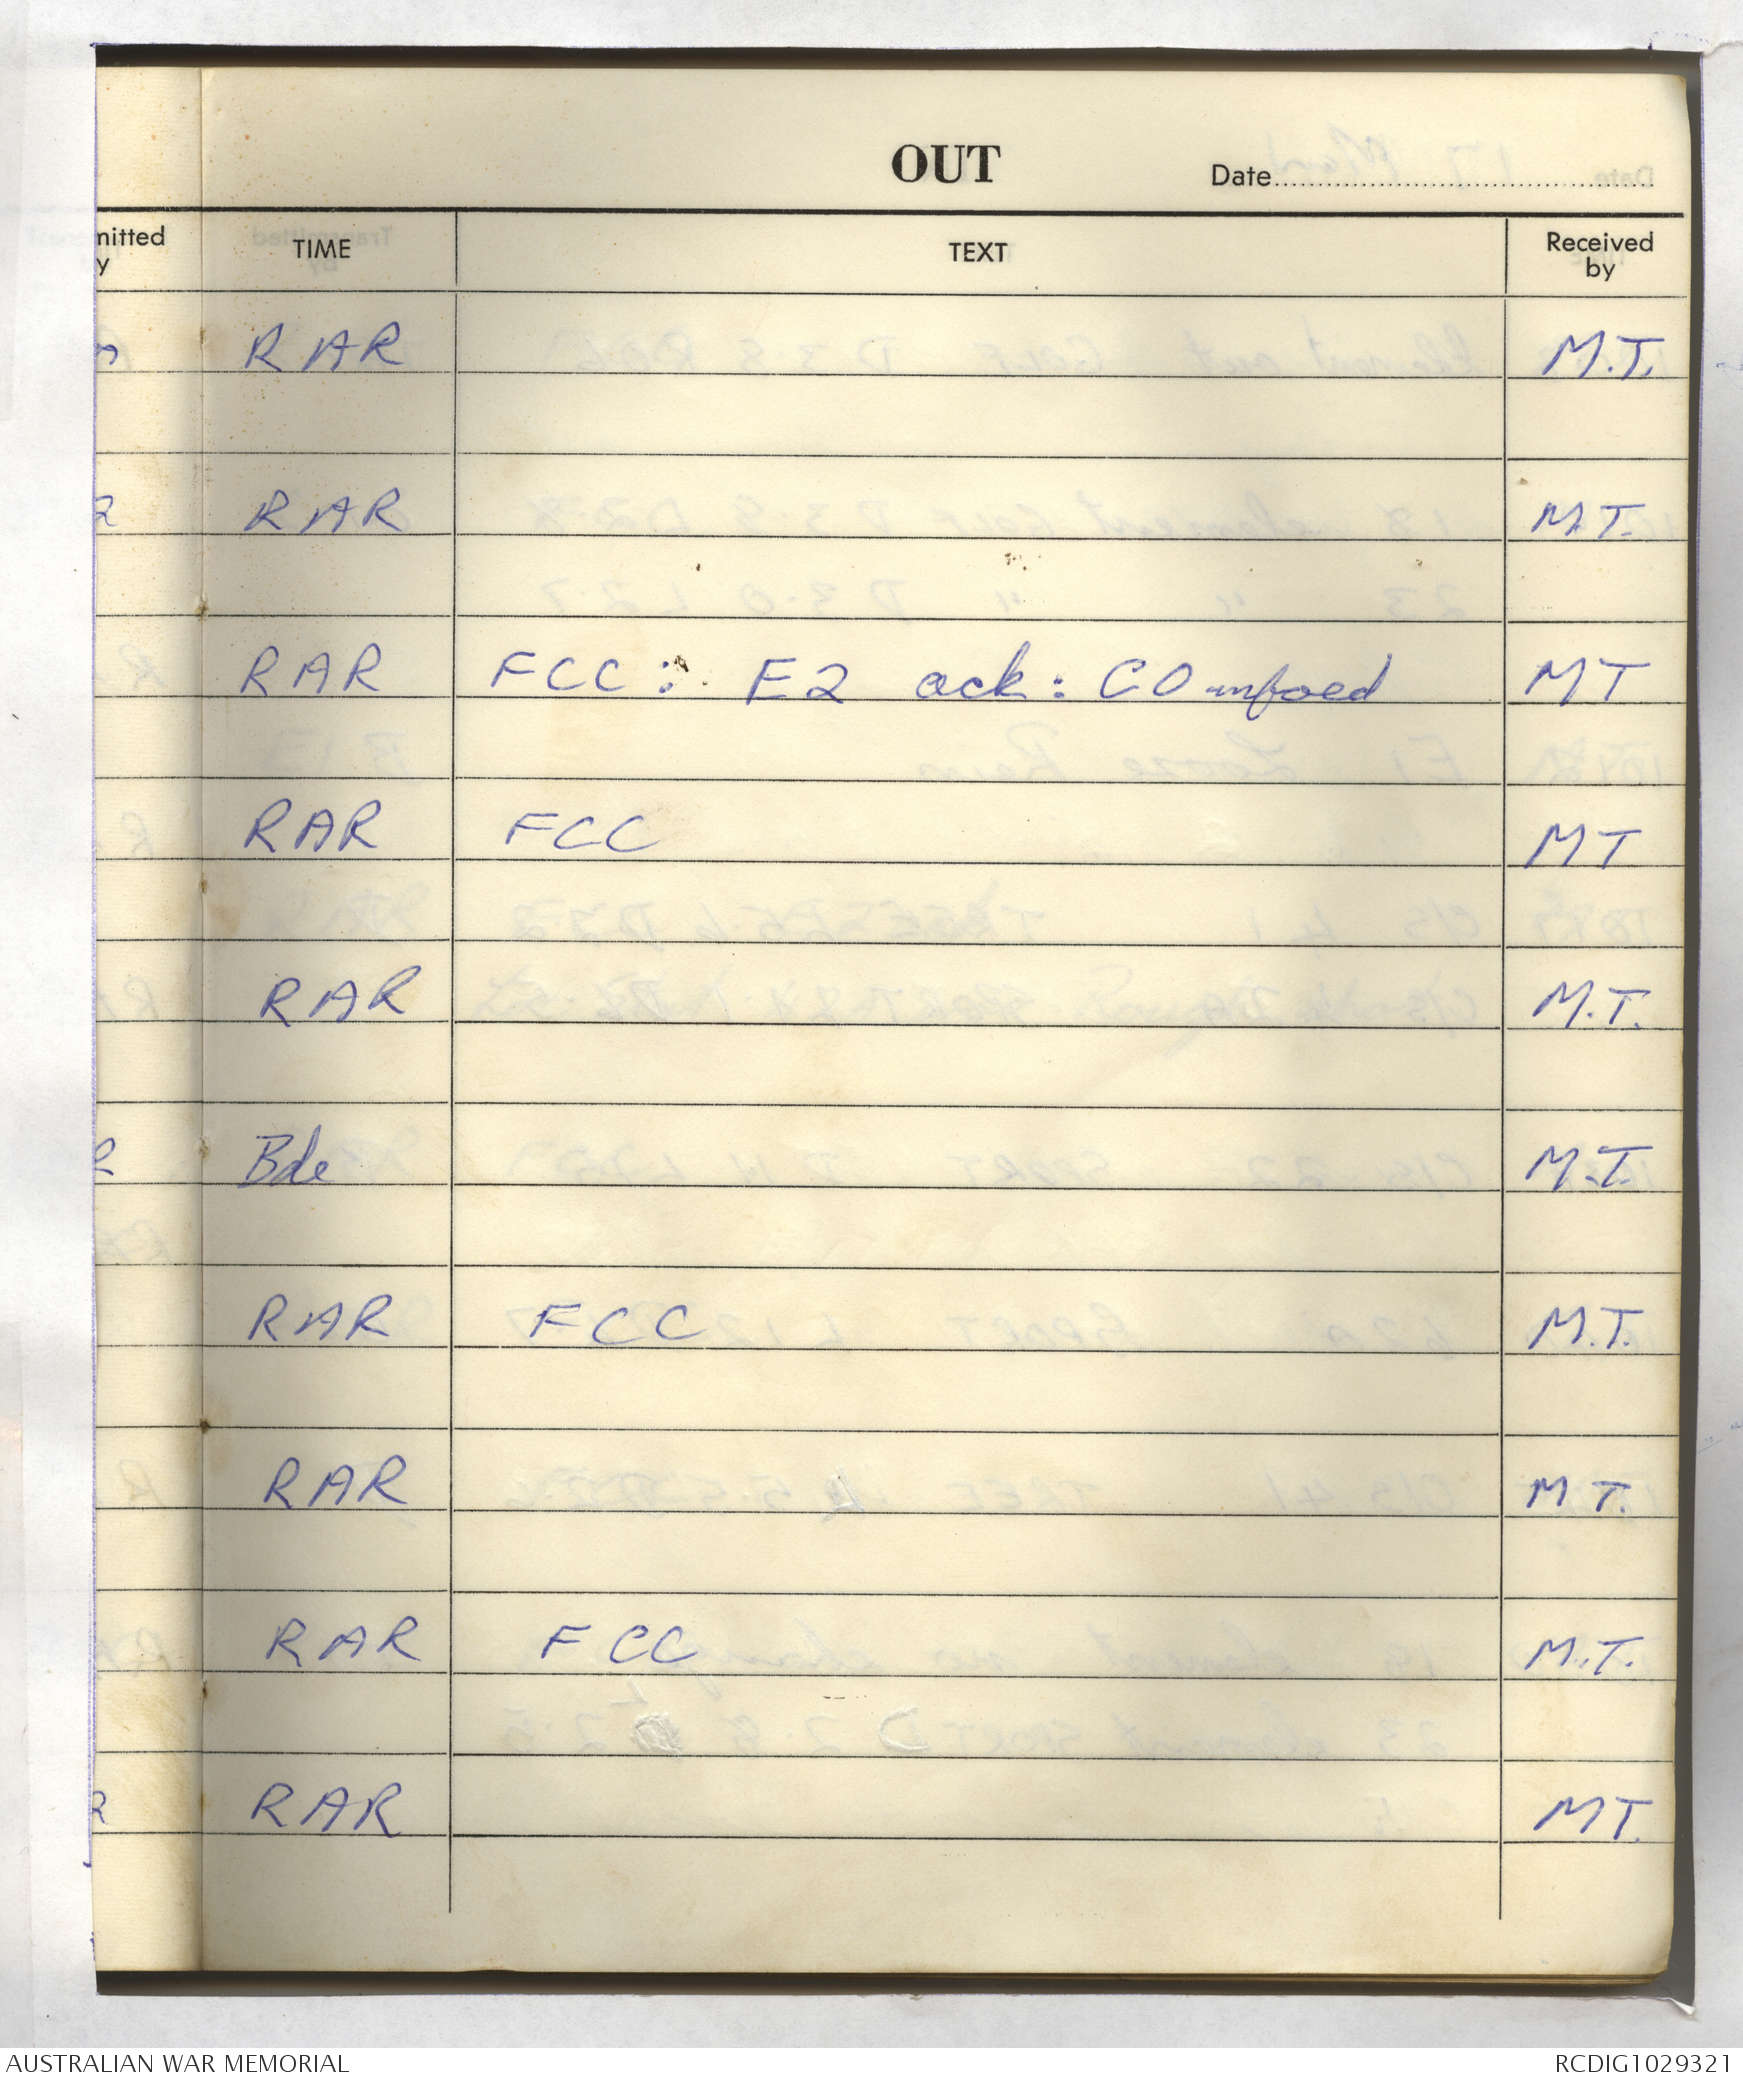 OUT
Date
mitted
y
TIME
TEXT
Received
by
RAR M.T.
R RAR M.T.
RAR FCC: E2 ack: CO infoed MT
RAR FCC MT
RAR M.T.
R Bde M.T.
RAR FCC M.T.
RAR M.T.
RAR FCC M.T.
R RAR MT.
AUSTRALIAN WAR MEMORIAL
RCDIG1029321